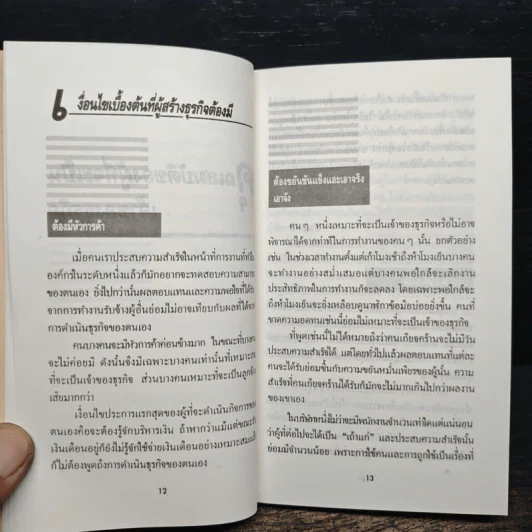 เงื่อนไขเบื้องต้นที่ผู้สร้างธุรกิจต้องมี
ต้องมีหัวการค้า
เมื่อคนเราประสบความสำเร็จในหน้าที่การงานที่ทำใน
องค์กรในระดับหนึ่งแล้วก็มักอยากจะทดสอบความสามาร
ของตนเอง ยิ่งไปกว่านั้นผลตอบแทนและความพอใจที่ได้รับ
จากการทำงานรับจ้างผู้อื่นย่อมไม่อาจเทียบกับผลที่ได้จาก
การดำเนินธุรกิจของตนเอง
คนบางคนจะมีหัวการค้าค่อนข้างมาก ในขณะที่บางคน
จะไม่ค่อยมี ดังนั้นจึงมีเฉพาะบางคนเท่านั้นที่เหมาะสม
ที่จะเป็นเจ้าของธุรกิจ ส่วนบางคนเหมาะที่จะเป็นลูกจ้าง
เสียมากกว่า
เงื่อนไขประการแรกสุดของผู้ที่จะดำเนินกิจการของ
ตนเองคือจะต้องรู้จักบริหารเงิน ถ้าหากว่าแม้แต่ขณะรับ
เงินเดือนอยู่ก็ยังไม่รู้จักใช้จ่ายเงินเดือนอย่างเหมาะสมแล้ว
ก็ไม่ต้องพูดถึงการดำเนินธุรกิจของตนเอง
12
ต้องขยันขันแข็งและเอาจริง
เอาจัง
คนๆ หนึ่งเหมาะที่จะเป็นเจ้าของธุรกิจหรือไม่อาจ
พิจารณาได้จากท่าทีในการทำงานของคนๆ นั้น ยกตัวอย่าง
เช่น ในช่วงเวลาทำงานตั้งแต่เก้าโมงเช้าถึงห้าโมงเย็นบางคน
จะทำงานอย่างสม่ำเสมอแต่บางคนพอใกล้จะเลิกงาน
ประสิทธิภาพในการทำงานก็จะลดลง โดยเฉพาะพอใกล้จะ
ถึงห้าโมงเย็นจะยิ่งเหลือบดูนาฬิกาข้อมือบ่อยยิ่งขึ้น คนที่
ขาดความอดทนเช่นนี้ย่อมไม่เหมาะที่จะเป็นเจ้าของธุรกิจ
ที่พูดเช่นนี้ไม่ได้หมายถึงคนเกียจคร้านจะไม่มีวัน
ประสบความสำเร็จได้ แต่โดยทั่วไปแล้วผลตอบแทนที่แต่ละ
คนจะได้รับย่อมขึ้นกับความขยันหมั่นเพียรของผู้นั้น ความ
สำเร็จที่คนเกียจคร้านได้รับก็มักจะไม่มากเกินไปกว่าผลงาน
ของเขาเอง
ในบริษัทหนึ่งไม่ว่าจะมีพนักงานจำนวนเท่าใดแต่แน่นอน
ว่าผู้ที่ต่อไปจะได้เป็น "เถ้าแก่" และประสบความสำเร็จนั้น
ย่อมมีจำนวนน้อย เพราะการใช้คนและการถูกใช้เป็นเรื่องที่
13